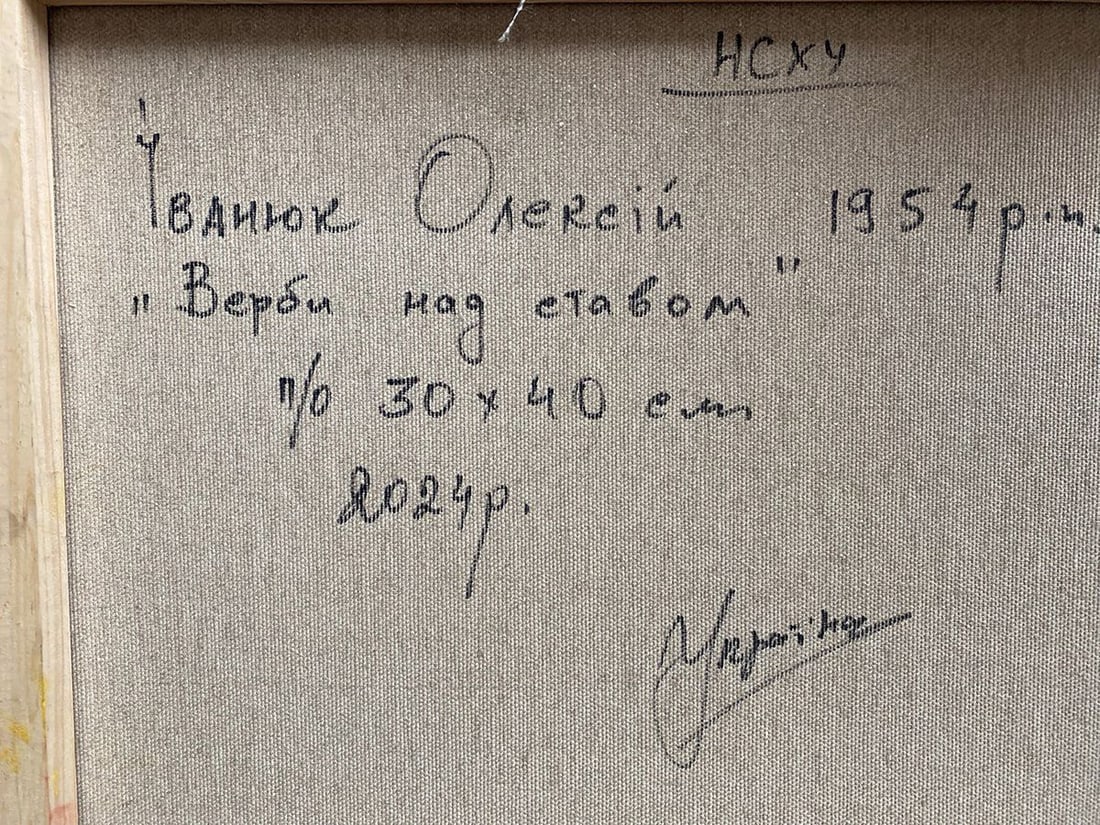 НСХУ
Іванюк Олексій 1954 р.н.
„Верби над ставом"
п/о 30 х 40 см
2024р.
Україна